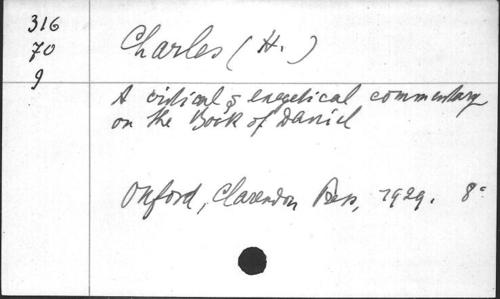 316
70
9
Charles (H.)
A critical & exegetical commentary
on the Book of Daniel
Oxford, Clarendon Press, 1929. 8°